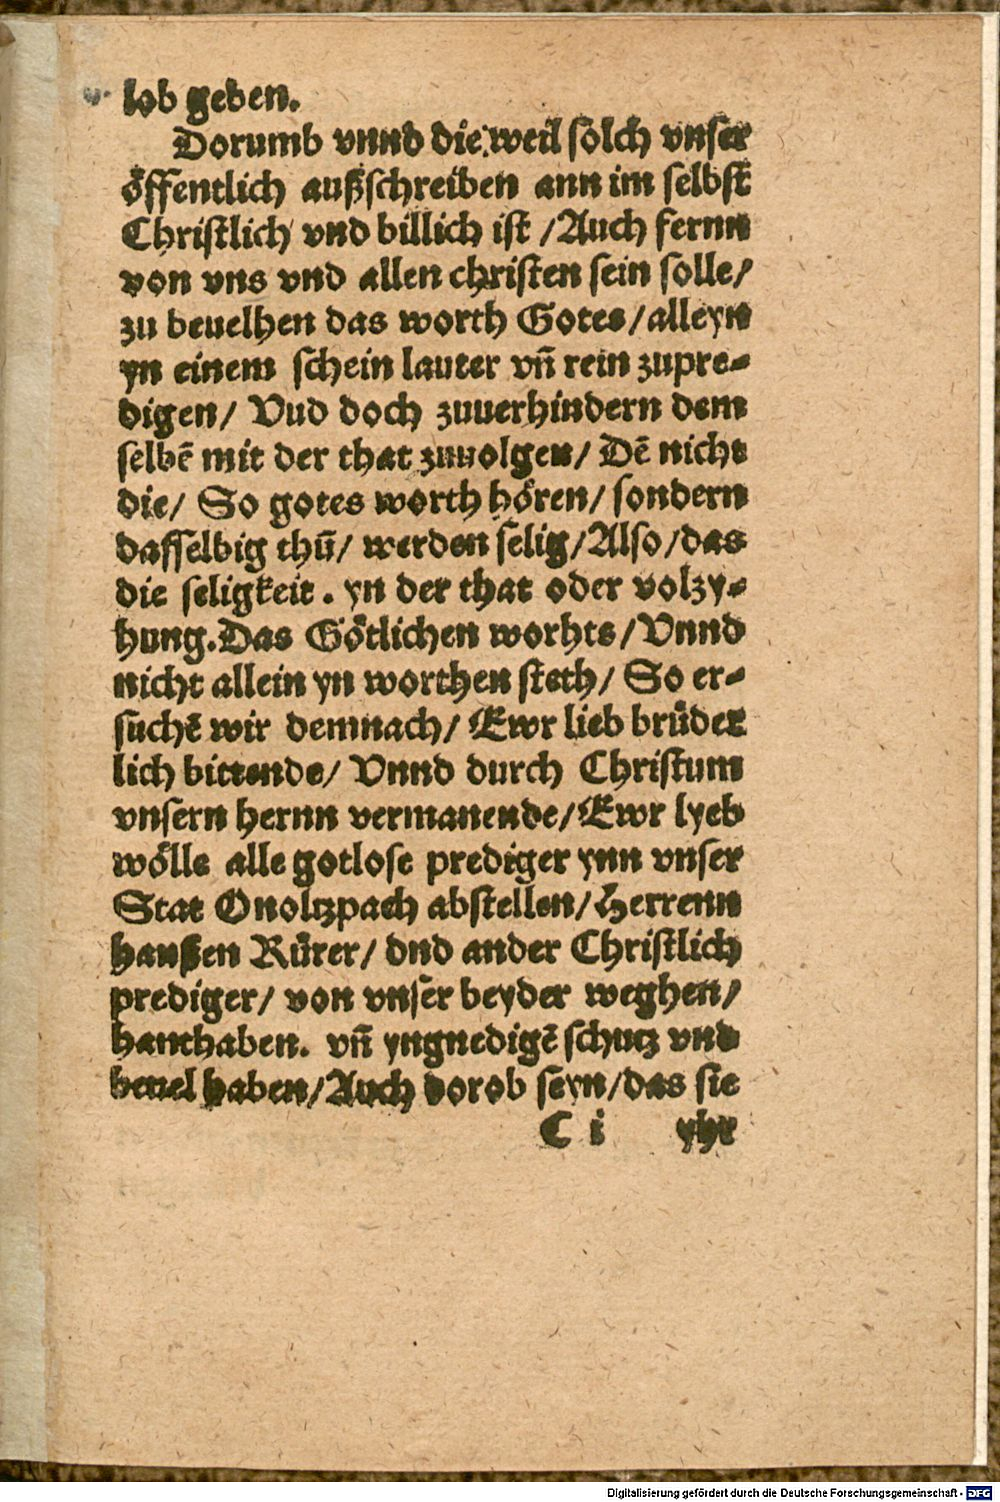 lob geben.
Dorumb vnnd die weil solch vnser
öffentlich außschreiben ann im selbst
Christlich vnd billich ist / Auch fernn
von vns vnd allen christen sein solle /
zu beuelhen das worth Gotes / alleyn
yn einem schein lauter vn̄ rein zupre-
digen / Vud doch zuuerhindern dem
selbē mit der that zuuolgen / Dē nicht
die / So gotes worth hören / sondern
dasselbig thū / werden selig / Also / das
die seligkeit . yn der that oder volzy-
hung. Das Götlichen worhts / Vnnd
nicht allein yn worthen steth / So er-
suchē wir demnach / Ewr lieb brůder
lich bittende / Vnnd durch Christum
vnsern hernn vermanende / Ewr lyeb
wölle alle gotlose prediger ynn vnser
Stat Onoltzpach abstellen / Herrenn
hanßen Růrer / dnd ander Christlich
prediger / von vnser beyder weghen /
hanthaben. vn̄ yngnedigē schutz vnd
beuel haben / Auch dorob seyn / das sie
C i yhr
Digitalisierung gefördert durch die Deutsche Forschungsgemeinschaft - DFG